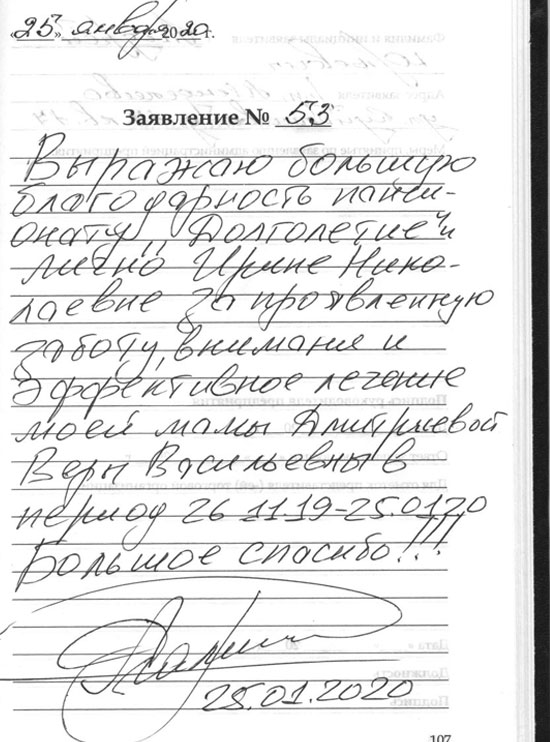 «25» января 2020г.
Заявление № 53
Выражаю большую
благодарность панси-
онату „Долголетие" и
лично Ирине Нико-
лаевне за проявленную
заботу, внимание и
эффективное лечение
моей мамы Дмитриевой
Веры Васильевны в
период 26 11.19-25.01.20
Большое спасибо!!!
25.01.2020
107